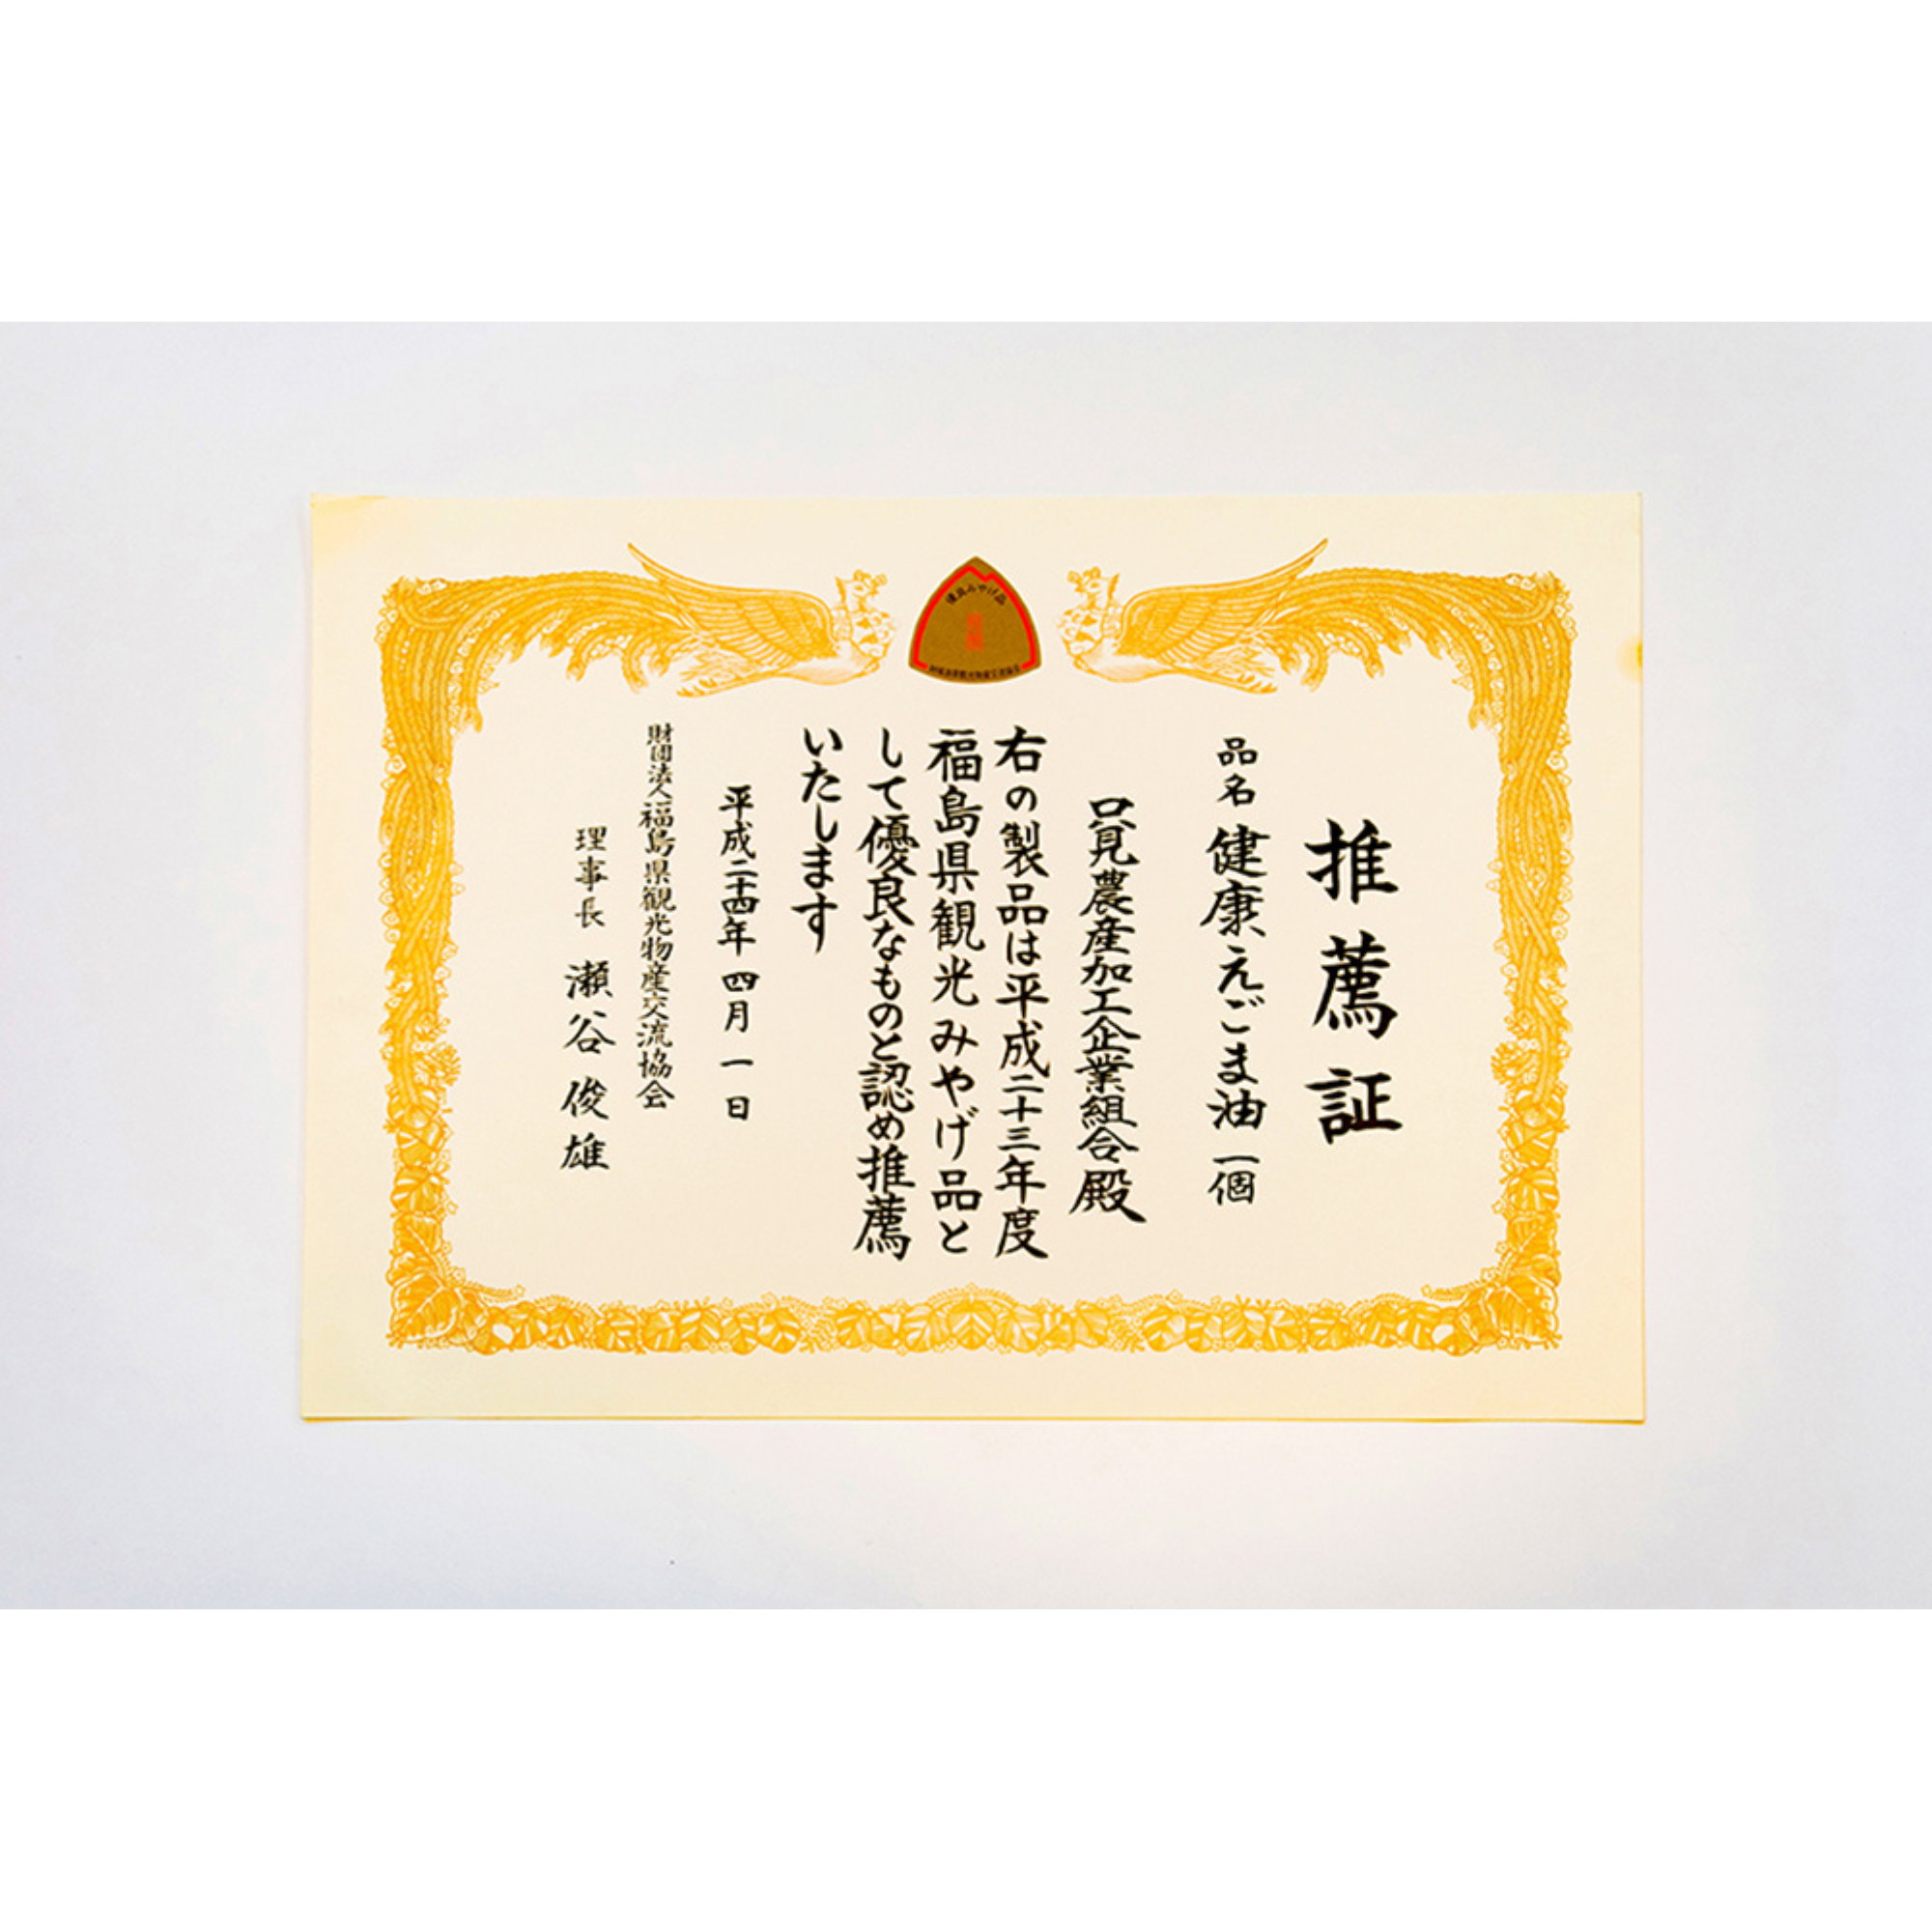 優良みやげ品
推薦
推薦証
品名 健康えごま油 一個
只見農産加工企業組合殿
右の製品は平成二十三年度
福島県観光みやげ品と
して優良なものと認め推薦
いたします
平成二十四年四月一日
財団法人福島県観光物産交流協会
理事長 瀬谷俊雄